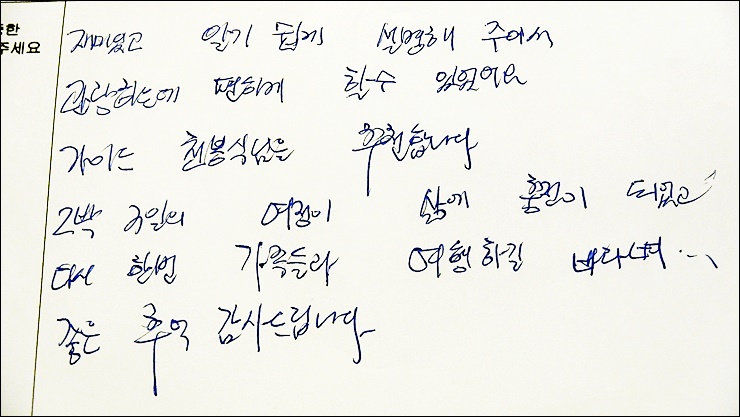 중한
주세요
재미있고 알기 쉽게 설명해 주어서
관람하는데 편하게 할수 있었어요
가이드 천봉식님을 추천합니다
2박 3일의 여정이 삶에 흔적이 되었고
다시 한번 가족들과 여행하길 바라며...
좋은 추억 감사드립니다